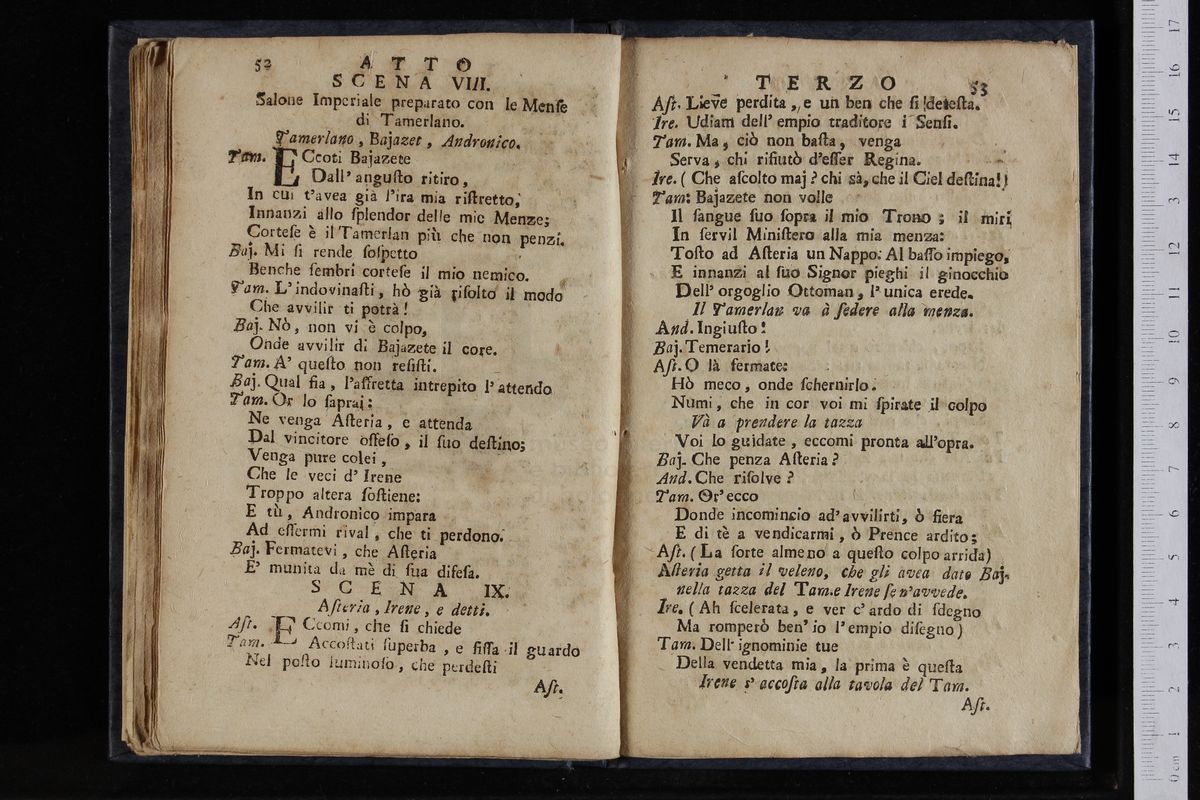 52 ATTO
SCENA VIII.
Salone Imperiale preparato con le Menſe
di Tamerlano.
Tamerlano, Bajazet, Andronico.
Tam. ECcoti Bajazete
Dall' anguſto ritiro,
In cui t'avea già l'ira mia riſtretto,
Innanzi allo ſplendor delle mie Menze;
Corteſe è il Tamerlan più che non penzi.
Baj. Mi ſi rende ſoſpetto
Benche ſembri corteſe il mio nemico.
Tam. L'indovinaſti, hò già riſolto il modo
Che avvilir ti potrà!
Baj. Nò, non vi è colpo,
Onde avvilir di Bajazete il core.
Tam. A' queſto non reſiſti.
Baj. Qual ſia, l'affretta intrepito l'attendo
Tam. Or lo ſaprai:
Ne venga Aſteria, e attenda
Dal vincitore offeſo, il ſuo deſtino;
Venga pure colei,
Che le veci d' Irene
Troppo altera ſoſtiene:
E tù, Andronico impara
Ad eſſermi rival, che ti perdono.
Baj. Fermatevi, che Aſteria
E' munita da mè di ſua difeſa.
SCENA IX.
Aſteria, Irene, e detti.
Aſt. ECcomi, che ſi chiede
Tam. Accoſtati ſuperba, e fiſſa il guardo
Nel poſto luminoſo, che perdeſti
Aſt.
TERZO 53
Aſt. Lieve perdita, e un ben che ſi deteſta.
Ire. Udiam dell' empio traditore i Senſi.
Tam. Ma, ciò non baſta, venga
Serva, chi rifiutò d'eſſer Regina.
Ire. ( Che aſcolto maj? chi sà, che il Ciel deſtina!)
Tam: Bajazete non volle
Il ſangue ſuo ſopra il mio Trono; il miri
In ſervil Miniſtero alla mia menza:
Toſto ad Aſteria un Nappo: Al baſſo impiego,
E innanzi al ſuo Signor pieghi il ginocchio
Dell' orgoglio Ottoman, l'unica erede.
Il Tamerlan va à ſedere alla menza.
And. Ingiuſto!
Baj. Temerario!
Aſt. O là fermate:
Hò meco, onde ſchernirlo.
Numi, che in cor voi mi ſpirate il colpo
Và a prendere la tazza
Voi lo guidate, eccomi pronta all'opra.
Baj. Che penza Aſteria?
And. Che riſolve?
Tam. Or' ecco
Donde incomincio ad' avvilirti, ò fiera
E di tè a vendicarmi, ò Prence ardito;
Aſt. (La ſorte almeno a queſto colpo arrida)
Aſteria getta il veleno, che gli avea dato Baj.
nella tazza del Tam.e Irene ſe n'avvede.
Ire. (Ah ſcelerata, e ver c' ardo di ſdegno
Ma romperò ben' io l'empio diſegno)
Tam. Dell' ignominie tue
Della vendetta mia, la prima è queſta
Irene s' accoſta alla tavola del Tam.
Aſt.
0 cm 1 2 3 4 5 6 7 8 9 10 11 12 13 14 15 16 17